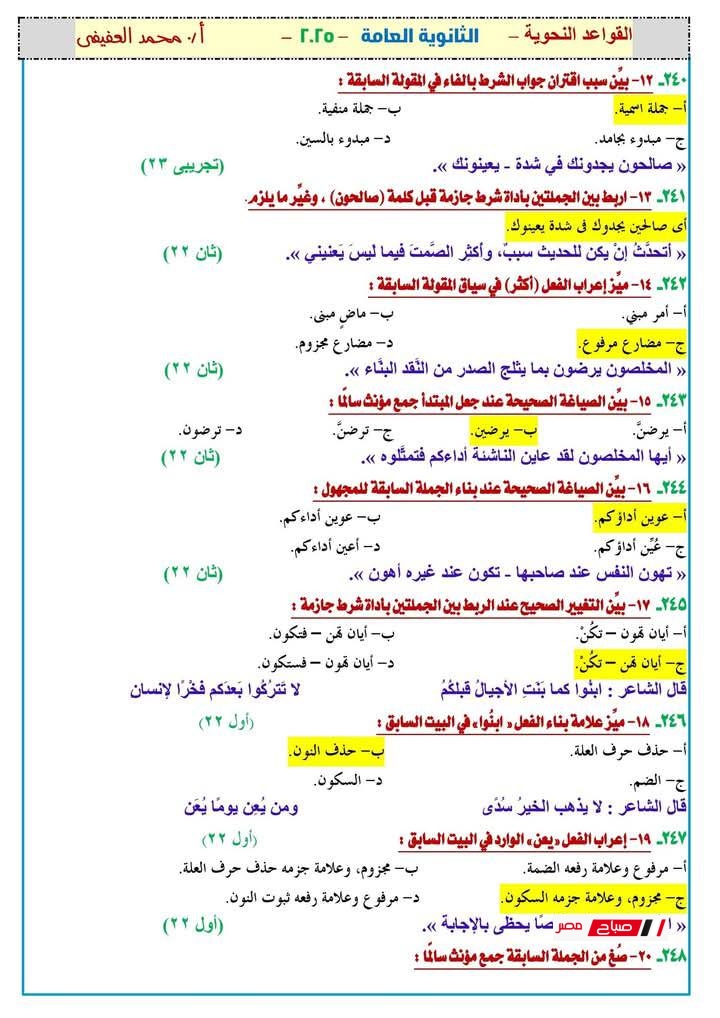 القواعد النحوية – الثانوية العامة – ٢٠٢٥ – أ/ محمد العفيفى
٢٤٠ـ ١٢- بيِّن سبب اقتران جواب الشرط بالفاء في المقولة السابقة :
أ– جملة اسمية. ب– جملة منفية.
ج– مبدوء بجامد. د– مبدوء بالسين.
« صالحون يجدونك في شدة - يعينونك ». (تجريبى ٢٣)
٢٤١ـ ١٣- اربط بين الجملتين بأداة شرط جازمة قبل كلمة (صالحون) ، وغيِّر ما يلزم.
أى صالحين يجدوك فى شدة يعينوك.
« أتحدَّثُ إنْ يكن للحديث سببٌ، وأكثر الصَّمتَ فيما ليسَ يَعنيني ». (ثان ٢٢)
٢٤٢ـ ١٤- ميِّز إعراب الفعل (أكثر) في سياق المقولة السابقة :
أ– أمر مبني. ب– ماضٍ مبنى.
ج– مضارع مرفوع. د– مضارع مجزوم.
« المخلصون يرضون بما يثلج الصدر من النَّقد البنَّاء ». (ثان ٢٢)
٢٤٣ـ ١٥- بيِّن الصياغة الصحيحة عند جعل المبتدأ جمع مؤنث سالمًا :
أ– يرضنَّ. ب– يرضين. ج– ترضنَّ. د– ترضون.
« أيها المخلصون لقد عاين الناشئة أداءكم فتمثَّلوه ». (ثان ٢٢)
٢٤٤ـ ١٦- بيِّن الصياغة الصحيحة عند بناء الجملة السابقة للمجهول :
أ– عوين أداؤكم. ب– عوين أداءكم.
ج– عُيِّن أداؤكم. د– أعين أداءكم.
« تهون النفس عند صاحبها - تكون عند غيره أهون ». (ثان ٢٢)
٢٤٥ـ ١٧- بيِّن التغيير الصحيح عند الربط بين الجملتين بأداة شرط جازمة :
أ– أيان تهون – تكُنْ. ب– أيان تهن – فتكون.
ج– أيان تهن – تكُنْ. د– أيان تهون – فستكون.
قال الشاعر : ابنُوا كما بَنَتِ الأجيالُ قبلكُمُ لا تَتركُوا بَعدَكم فخْرًا لإنسان
٢٤٦ـ ١٨- ميِّز علامة بناء الفعل « ابنُوا» في البيت السابق : (أول ٢٢)
أ– حذف حرف العلة. ب– حذف النون.
ج– الضم. د– السكون.
قال الشاعر : لا يذهب الخيرُ سُدًى ومن يُعِن يومًا يُعَن
٢٤٧ـ ١٩- إعراب الفعل «يعن» الوارد في البيت السابق : (أول ٢٢)
أ– مرفوع وعلامة رفعه الضمة. ب– مجزوم، وعلامة جزمه حذف حرف العلة.
ج– مجزوم، وعلامة جزمه السكون. د– مرفوع وعلامة رفعه ثبوت النون.
صباح مصر صًا يحظى بالإجابة ». (أول ٢٢)
٢٤٨ـ ٢٠- صُغ من الجملة السابقة جمع مؤنث سالمًا :